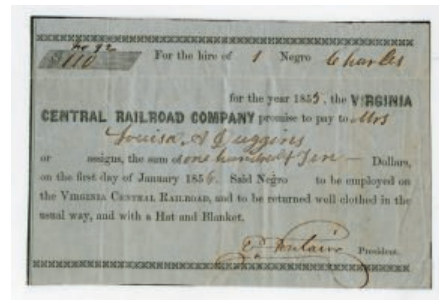 No 92
$110 For the hire of 1 Negro Charles
for the year 1855, the VIRGINIA
CENTRAL RAILROAD COMPANY promise to pay to Mrs
Louisa A
or assigns, the sum of one hundred & Ten — Dollars,
on the first day of January 1856. Said Negro to be employed on
the VIRGINIA CENTRAL RAILROAD, and to be returned well clothed in the
usual way, and with a Hat and Blanket.
Fontaine President.